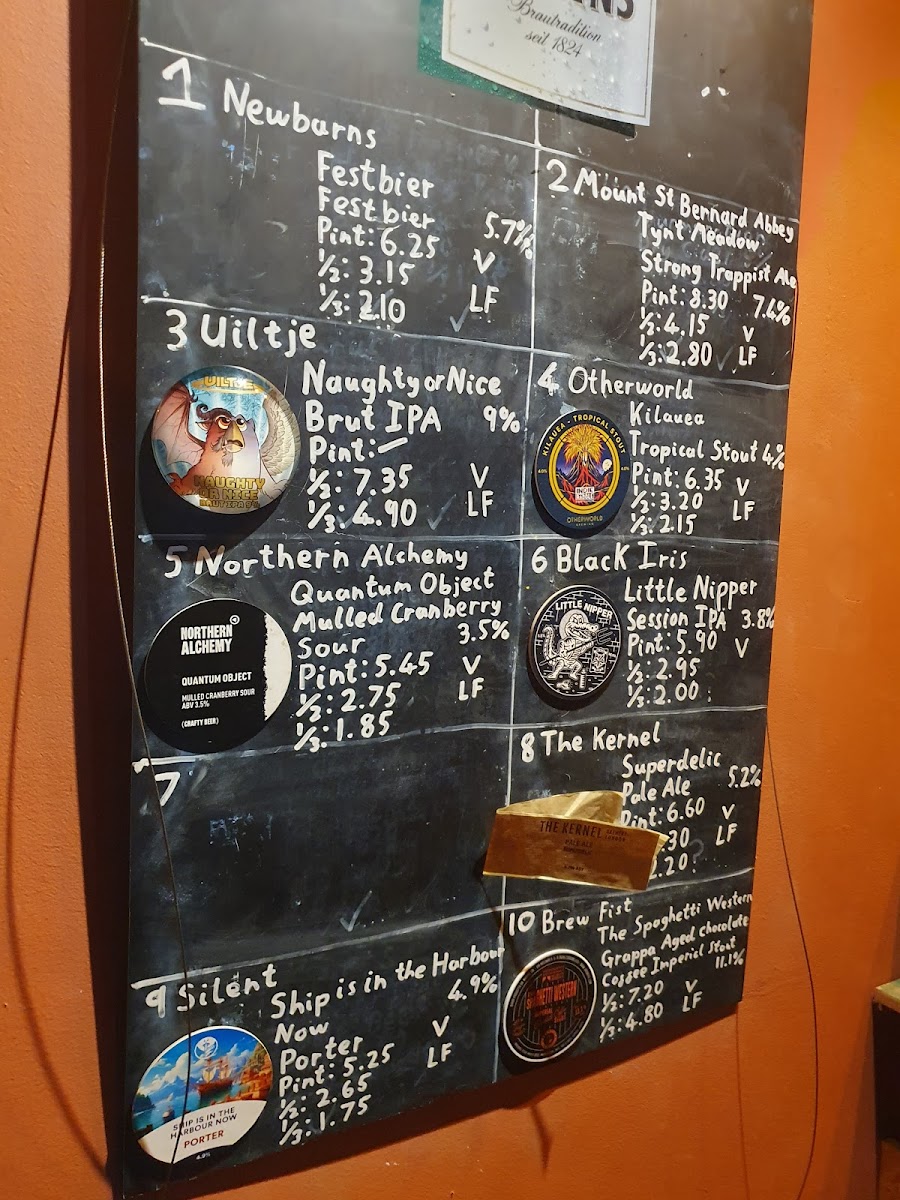 Brautradition
seit 1824
1 Newbarns
Festbier
Festbier 5.7%
Pint: 6.25
½: 3.15 V
⅓: 2.10 LF
2 Mount St Bernard Abbey
Tynt Meadow
Strong Trappist Ale
Pint: 8.30 7.4%
½: 4.15 V
⅓: 2.80 LF
3 Uiltje
Naughty or Nice
Brut IPA 9%
Pint: –
½: 7.35 V
⅓: 4.90 LF
UILTJE
NAUGHTY
OR NICE
BRUT IPA 9%
4 Otherworld
Kilauea
Tropical Stout 4%
Pint: 6.35 V
½: 3.20 LF
⅓: 2.15
KILAUEA - TROPICAL STOUT
OTHERWORLD
5 Northern Alchemy
Quantum Object
Mulled Cranberry
Sour 3.5%
Pint: 5.45 V
½: 2.75 LF
⅓: 1.85
NORTHERN
ALCHEMY
QUANTUM OBJECT
MULLED CRANBERRY SOUR
ABV 3.5%
(CRAFTY BEER)
6 Black Iris
Little Nipper
Session IPA 3.8%
Pint: 5.90 V
½: 2.95
⅓: 2.00
LITTLE NIPPER
7
8 The Kernel
Superdelic
Pale Ale 5.2%
Pint: 6.60 V
.30 LF
.20?
THE KERNEL
PALE ALE
9 Silent
Ship is in the Harbour
Now 4.9%
Porter V
Pint: 5.25 LF
½: 2.65
⅓: 1.75
SHIP IS IN THE
HARBOUR NOW
PORTER
4.9%
10 Brew Fist
The Spaghetti Western
Grappa Aged chocolate
Coffee Imperial Stout
11.1%
½: 7.20 V
⅓: 4.80 LF
SPAGHETTI WESTERN